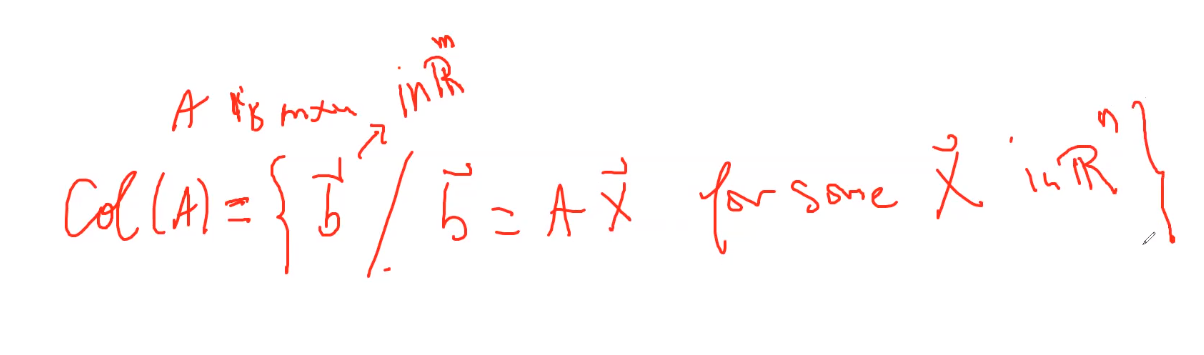 A is mxn in ℝᵐ
Col(A) = { b⃗ / b⃗ = A x⃗ for some x⃗ in ℝⁿ }